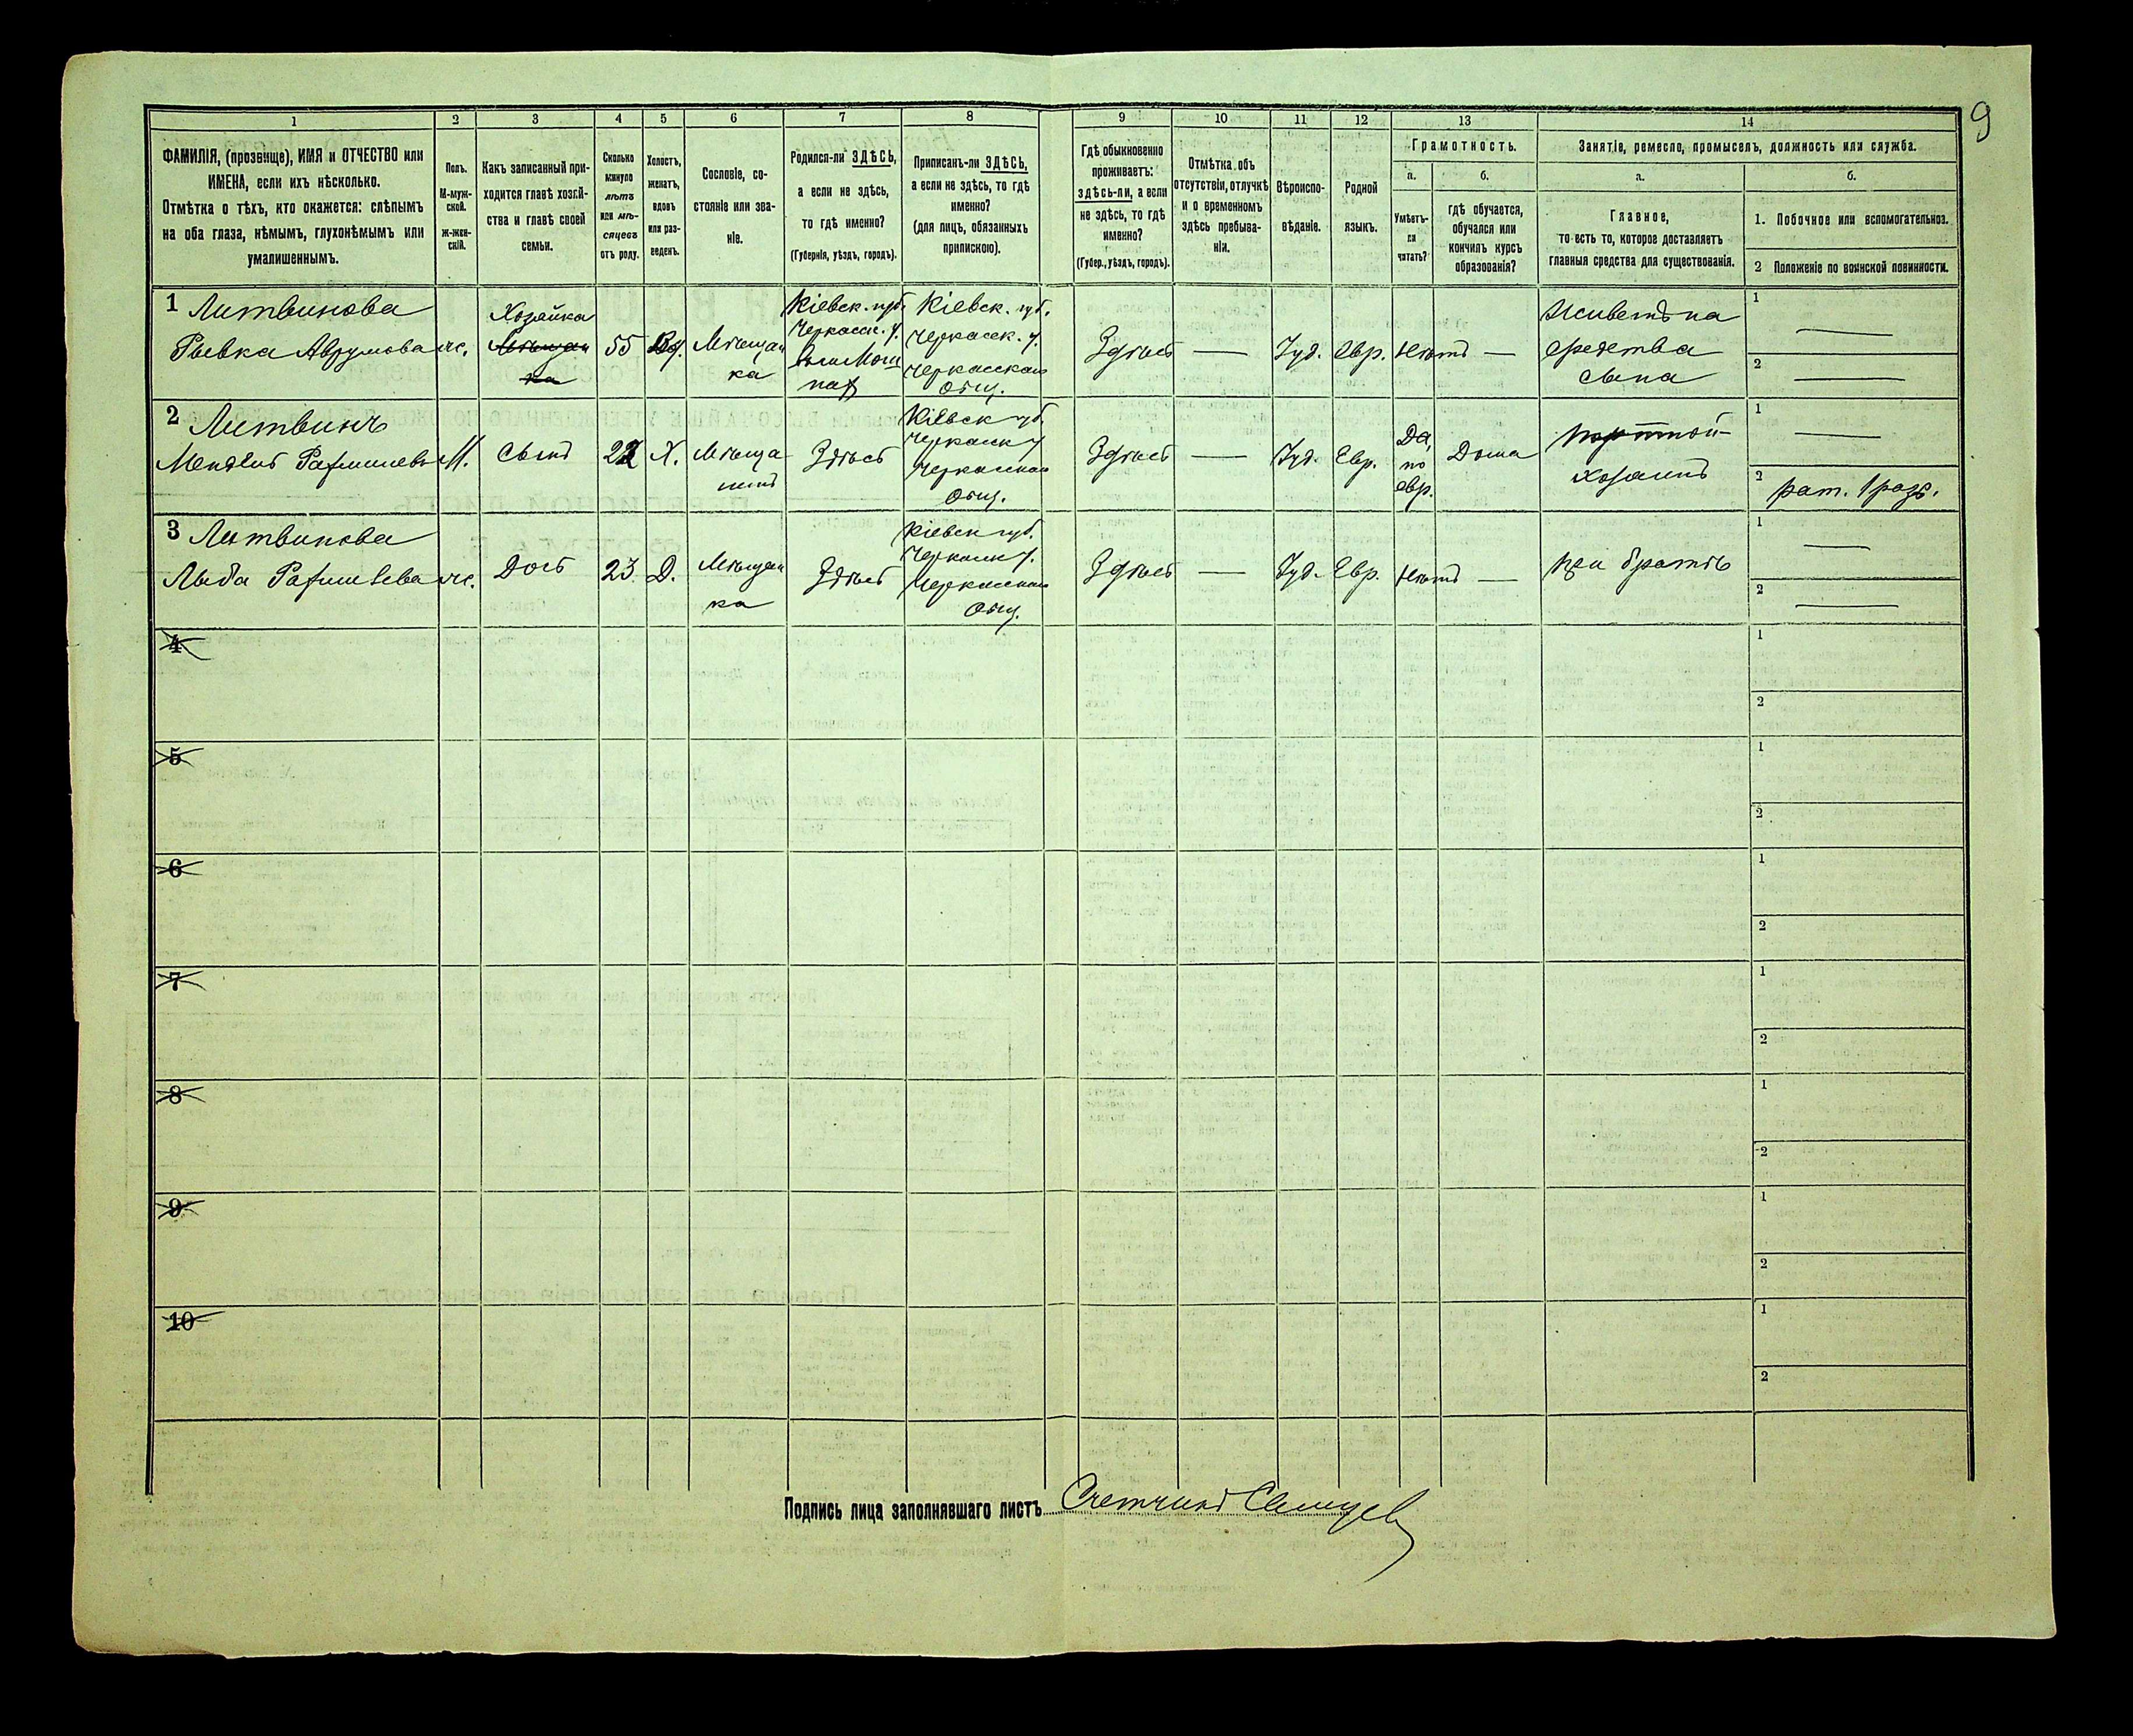 9
1 2 3 4 5 6 7 8 9 10 11 12 13 14
ФАМИЛІЯ, (прозвище), ИМЯ и ОТЧЕСТВО или
ИМЕНА, если ихъ нѣсколько.
Отмѣтка о тѣхъ, кто окажется: слѣпымъ
на оба глаза, нѣмымъ, глухонѣмымъ или
умалишеннымъ.
Полъ.
М-муж-
ской.
ж-жен-
скій.
Какъ записанный при-
ходится главѣ хозяй-
ства и главѣ своей
семьи.
Сколько
минуло
лѣтъ
или мѣ-
сяцевъ
отъ роду.
Холостъ,
женатъ,
вдовъ
или раз-
веденъ.
Сословіе, со-
стояніе или зва-
ніе.
Родился-ли ЗДѢСЬ,
а если не здѣсь,
то гдѣ именно?
(Губернія, уѣздъ, городъ).
Приписанъ-ли ЗДѢСЬ,
а если не здѣсь, то гдѣ
именно?
(для лицъ, обязанныхъ
припискою).
Гдѣ обыкновенно
проживаетъ:
здѣсь-ли, а если
не здѣсь, то гдѣ
именно?
(Губер., уѣздъ, городъ).
Отмѣтка объ
отсутствіи, отлучкѣ
и о временномъ
здѣсь пребыва-
ніи.
Вѣроиспо-
вѣданіе.
Родной
языкъ.
Грамотность.
а.
Умѣетъ-
ли
читать?
б.
гдѣ обучается,
обучался или
кончилъ курсъ
образованія?
Занятіе, ремесло, промыселъ, должность или служба.
а.
Главное,
то-есть то, которое доставляетъ
главныя средства для существованія.
б.
1. Побочное или вспомогательное.
2 Положеніе по воинской повинности.
1 Литвинова
Рывка Аврумова
ж.
Хозяйка
Мѣщан
ка
55
Вд.
Мѣщан
ка
Кіевск. губ.
Черкасск. у.
нах
Кіевск. губ.
Черкасск. у.
Черкасское
общ.
Здѣсь
—
Іуд.
Евр.
Нѣтъ
—
Живетъ на
средства
сына
1 —
2 —
2 Литвинъ
Мендель
М.
Сынъ
Х.
Мѣща
нинъ
Здѣсь
Кіевск губ.
Черкасск у
Черкасское
общ.
Здѣсь
—
Іуд.
Евр.
Да,
по
евр.
Дома
Портной-
хозяинъ
1 —
2 рат. 1 разр.
3 Литвинова
ж.
Дочь
23
Д.
Мѣщан
ка
Здѣсь
Кіевск губ.
Черкасск у.
Черкасское
общ.
Здѣсь
—
Іуд.
Евр.
Нѣтъ
—
при братѣ
1 —
2 —
4 1
2
5 1
2
6 1
2
7 1
2
8 1
2
9 1
2
10 1
2
Подпись лица заполнявшаго листъ Счетчикъ